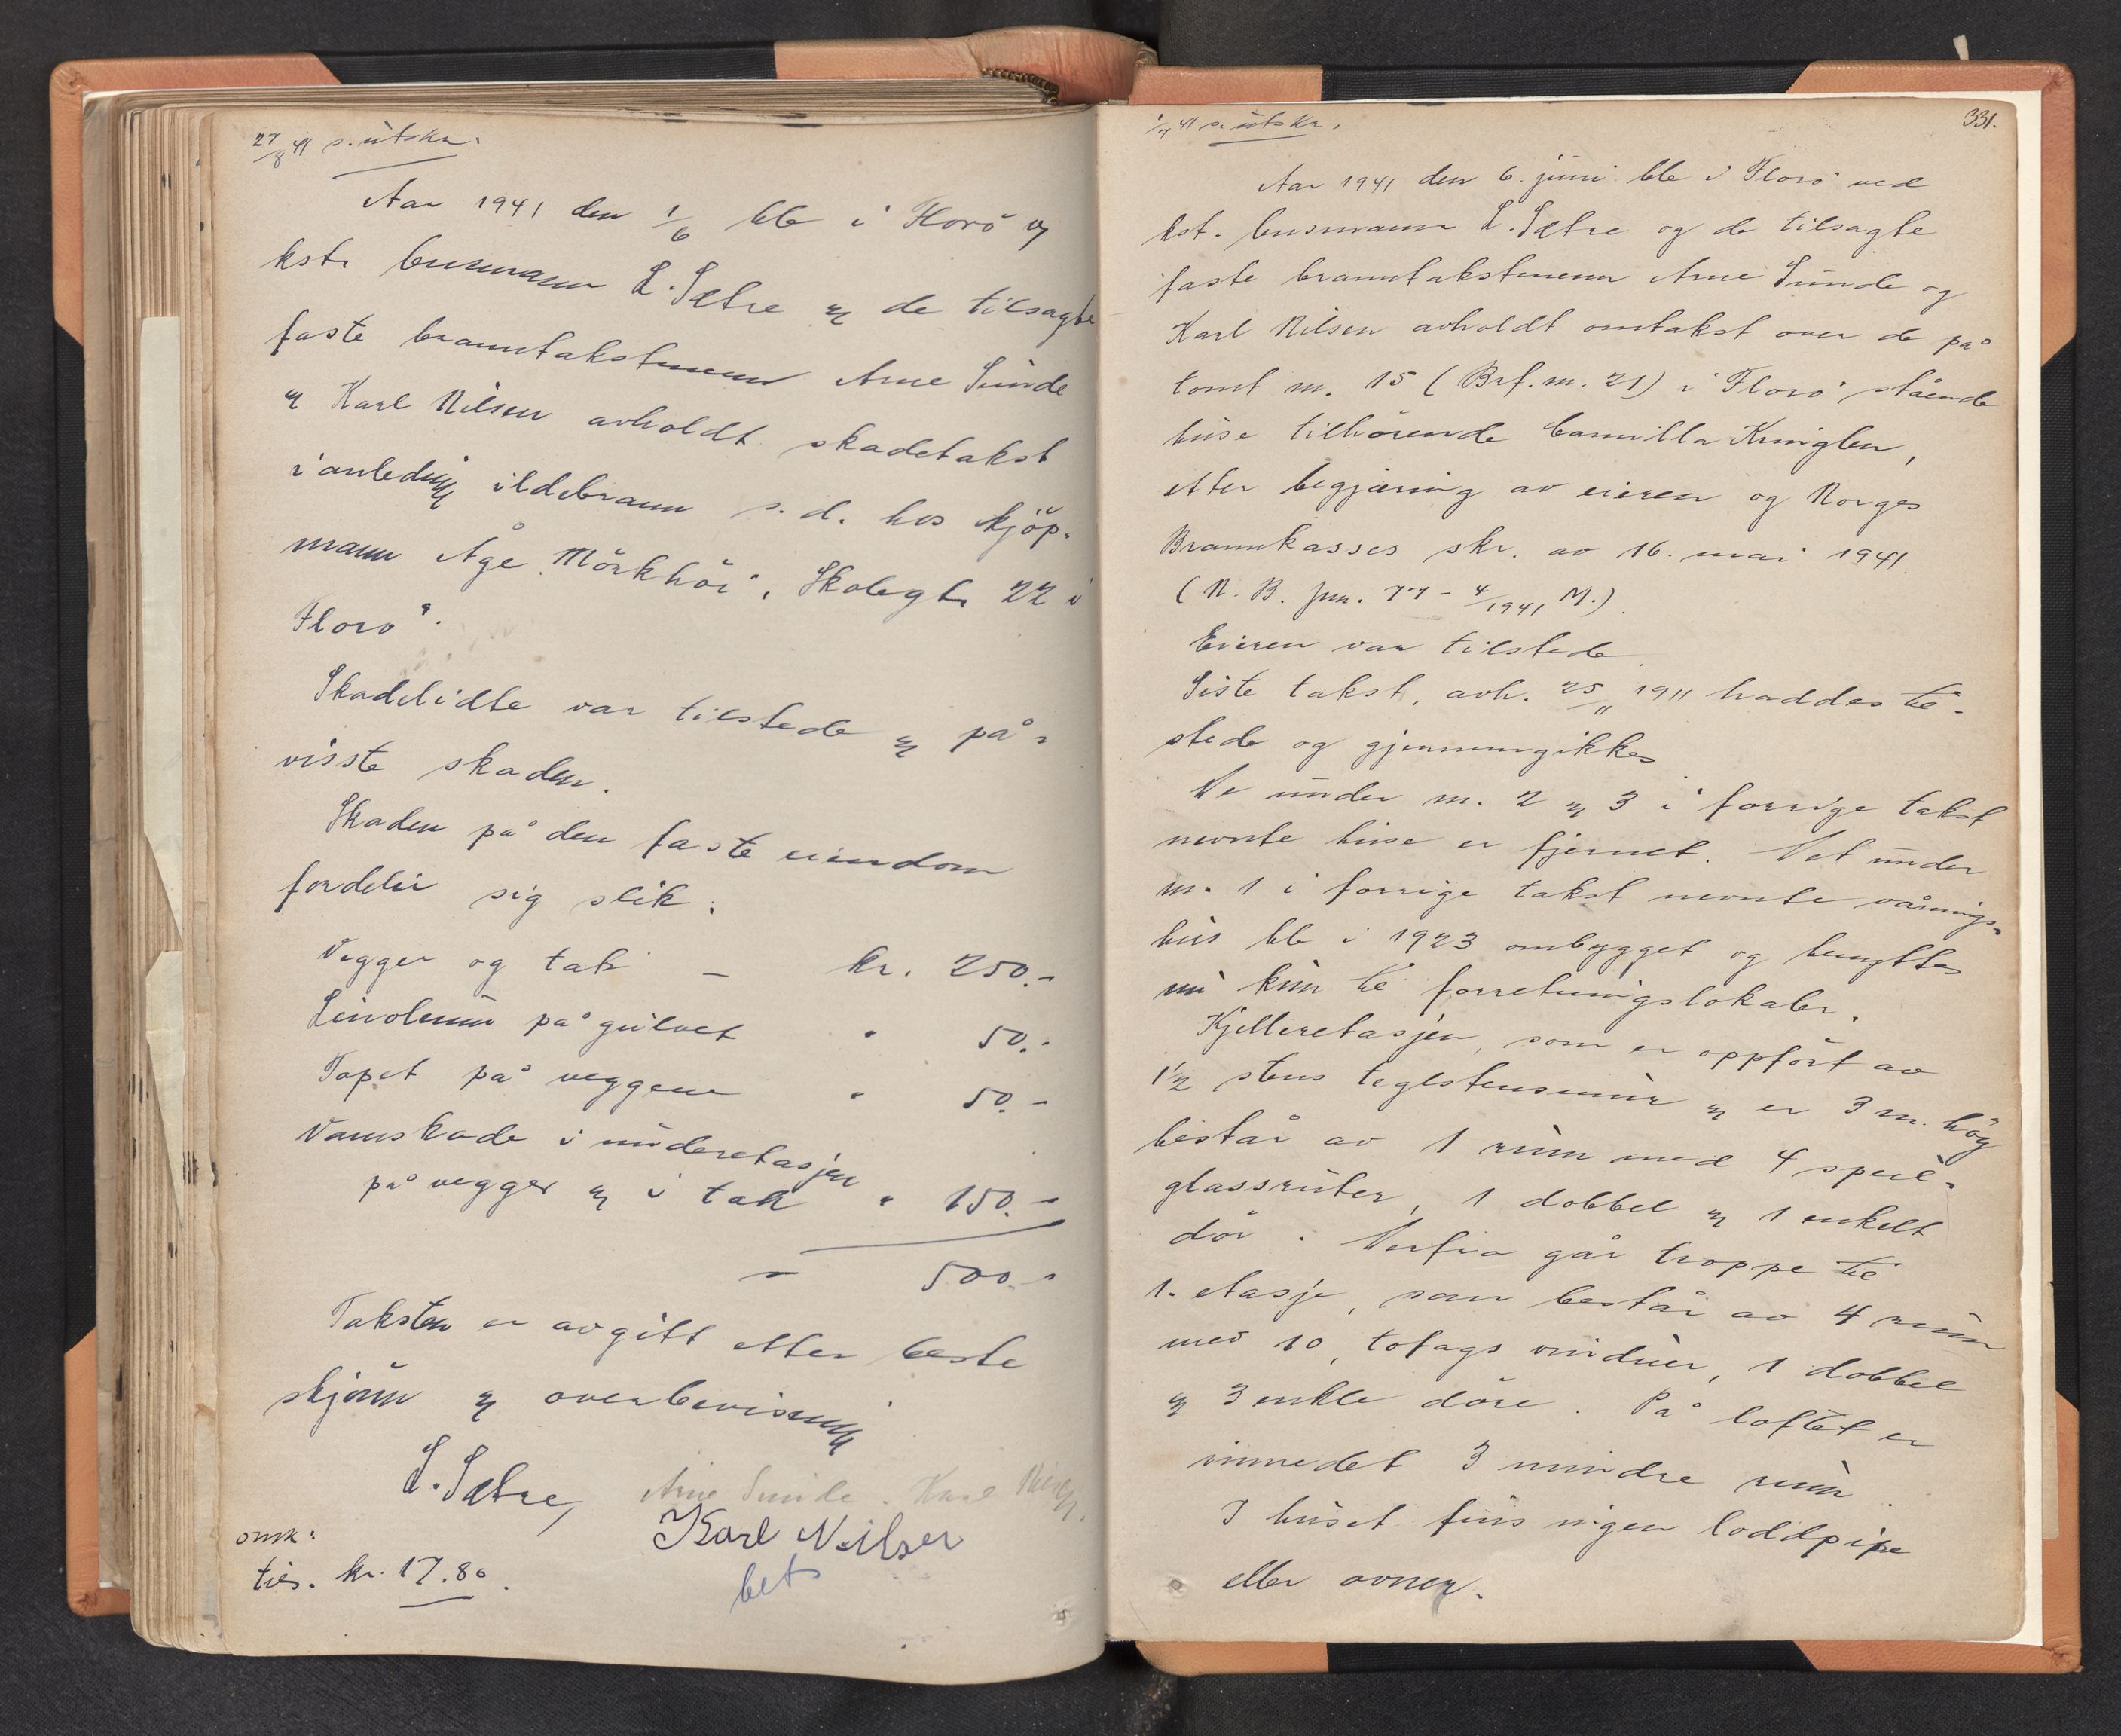 27/8 41 s. utskr.
Aar 1941 den 1/6 ble i Florö og
kst. busmann L. Sætre og de tilsagte
faste branntakstmenn Arne Sunde
og Karl Nilsen avholdt skadetakst
i anledning ildebrann s.d. hos kjöp-
mann Åge Mörkhör, Skolegt. 22 i
Florö.
Skadelidte var tilstede og på-
visste skaden.
Skaden på den faste eiendom
fordeler sig slik:
Vegger og tak – kr. 250.-
Linoleum på gulvet " 50.-
Tapet på veggene " 50.-
Vannskade i underetasjen
på vegger og i tak " 150.-
" 500.-
Taksten er avgitt etter beste
skjönn og overbevisning
L. Sætre, Arne Sunde. Karl Nilsen.
Karl Nilsen
omk:
tils. kr. 17.80.
bet.
1/7 41 s. utskr.
331.
Aar 1941 den 6. juni ble i Florö ved
kst. busmann L. Sætre og de tilsagte
faste branntakstmenn Arne Sunde og
Karl Nilsen avholdt omtakst over de på
tomt nr. 15 (Brf. nr. 21) i Florö stående
huse tilhörende Camilla
etter begjæring av eieren og Norges
Brannkasses skr. av 16. mai 1941.
(N. B. Jnr. 77 - 4/1941 M.).
Eieren var tilstede.
Siste takst, avh. 25/11 1911 haddes til-
stede og gjennemgikkes
De under nr. 2 og 3 i forrige takst
nevnte huse er fjernet. Det under
nr. 1 i forrige takst nevnte vånings-
hus ble i 1923 ombygget og benyttes
nu kun til forretningslokaler.
Kjelleretasjen, som er oppfört av
1½ stens teglstensmur og er 3 m. höy
består av 1 rum med 4 speil-
glassruter, 1 dobbel og 1 enkelt
dör. Derfra går trappe til
1. etasje, som består av 4 rum
med 10, tofags vinduer, 1 dobbel
og 3 enkle döre. På loftet er
innredet 3 mindre rum.
I huset fins ingen loddpipe
eller ovner.